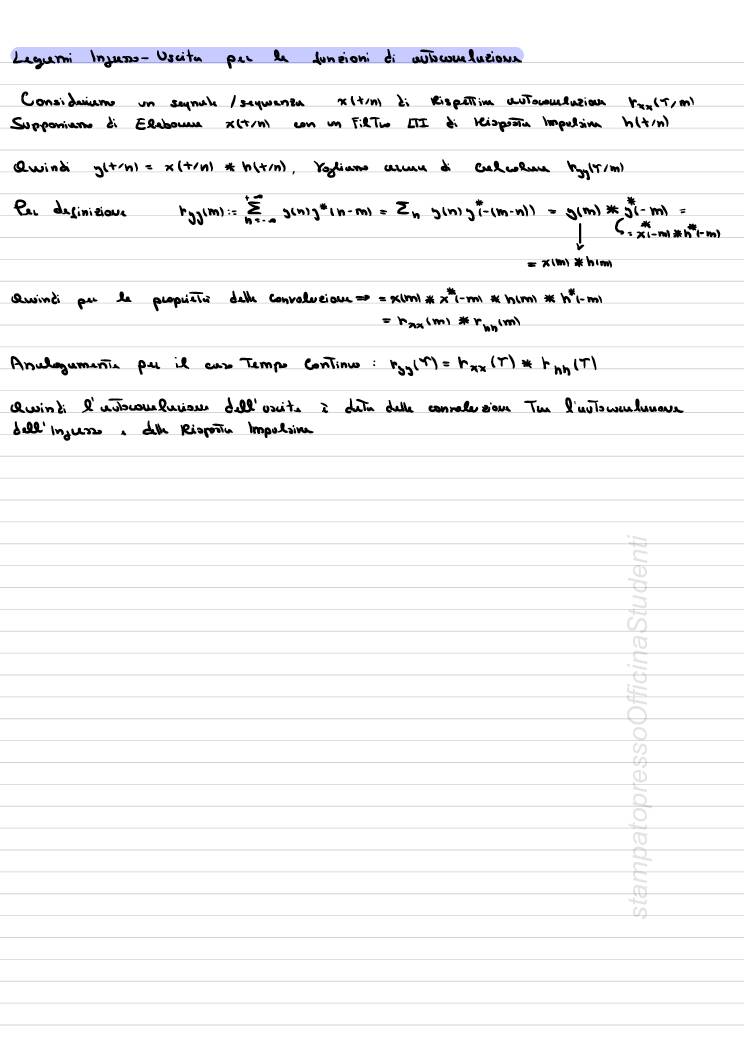 Legami Ingresso-Uscita per le funzioni di autocorrelazione
Consideriamo un segnale/sequenza x(t/n) di Rispettiva autocorrelazione rxx(τ/m)
Supponiamo di Elaborare x(t/n) con un Filtro LTI di Risposta Impulsiva h(t/n)
Quindi y(t/n) = x(t/n) * h(t/n), Vogliamo cercare di calcolare ryy(τ/m)
Per definizione ryy(m) := Σ_{n=-∞}^{+∞} y(n)y*(n-m) = Σn y(n)y*(-(m-n)) = y(m) * y*(-m) =
= x*(-m) * h*(-m)
= x(m) * h(m)
Quindi per le proprietà della convoluzione ⇒ = x(m) * x*(-m) * h(m) * h*(-m)
= rxx(m) * rhh(m)
Analogamente per il caso Tempo Continuo : ryy(τ) = rxx(τ) * rhh(τ)
Quindi l'autocorrelazione dell'uscita è data dalla convoluzione Tra l'autocorrelazione
dell'Ingresso e della Risposta Impulsiva
stampatopressoOfficinaStudenti